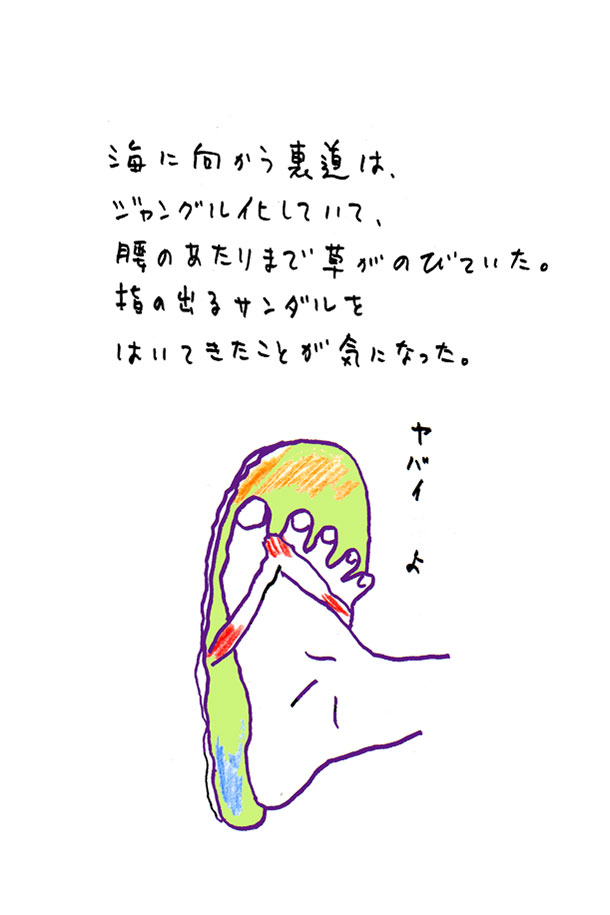 海に向かう裏道は、
ジャングル化していて、
腰のあたりまで草がのびていた。
指の出るサンダルを
はいてきたことが気になった。
ヤバイ よ